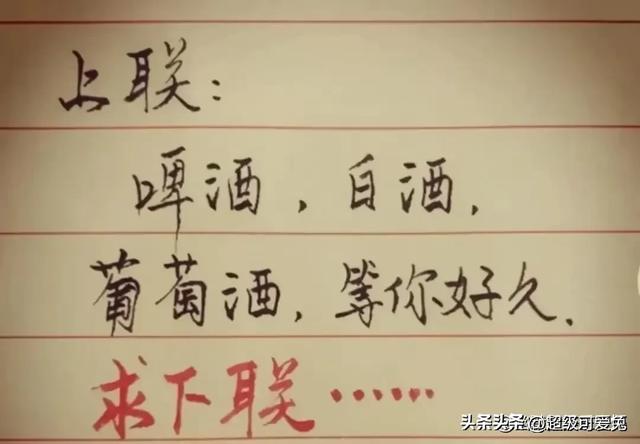 上联：
啤酒，白酒，
葡萄酒，等你好久.
求下联……
头条头条@超级可爱兔